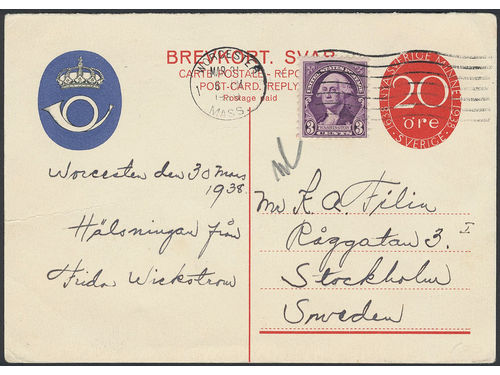 BREVKORT. SVAR
CARTE POSTALE - RÉPONSE
POST-CARD. REPLY
Postage paid
WORCESTER
MASS.
UNITED STATES POSTAGE
WASHINGTON
3 CENTS 3
NYA SVERIGE MINNET
1638 1938
20
öre
SVERIGE
Worcester den 30 Mars
1938.
Hälsningar från
Frida Wickstrom
Mr K A Filin
Råggatan 3. I.
Stockholm
Sweden